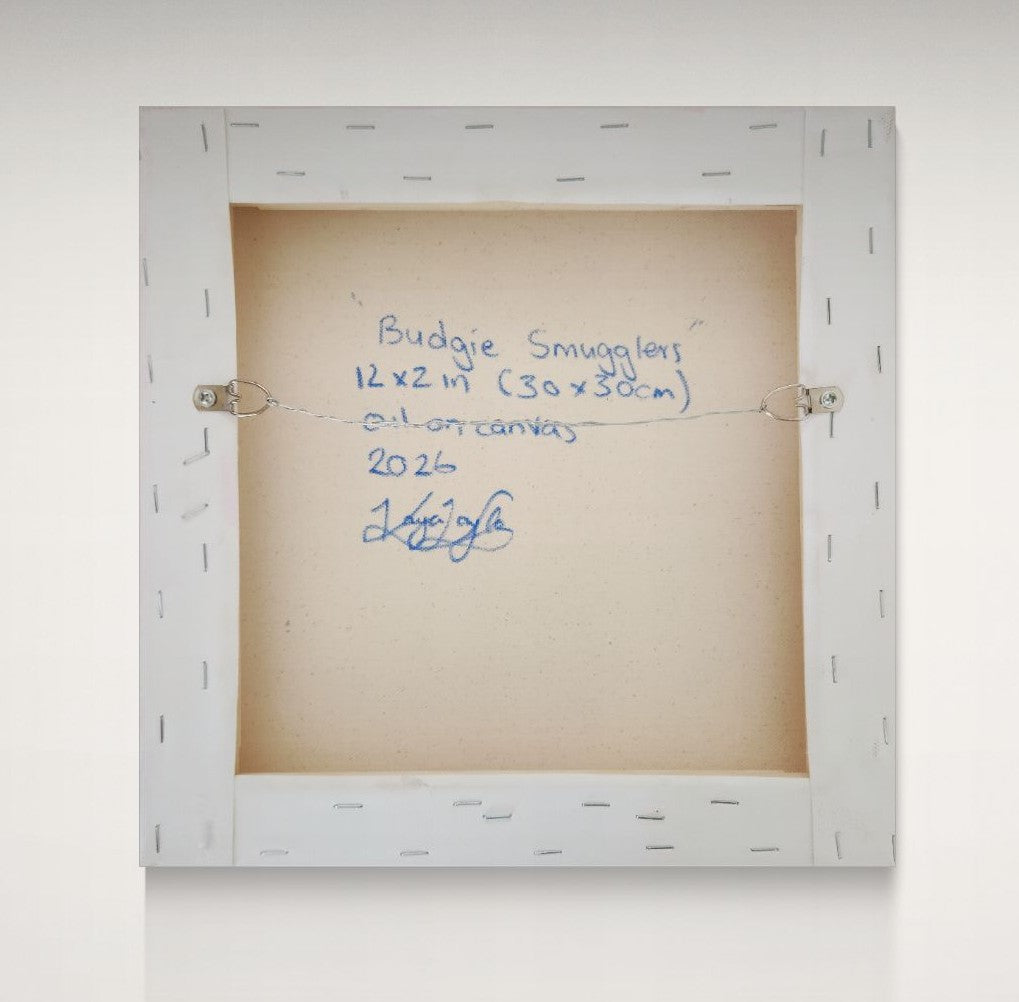 "Budgie Smugglers"
12x2 in (30x30cm)
oil on canvas
2026